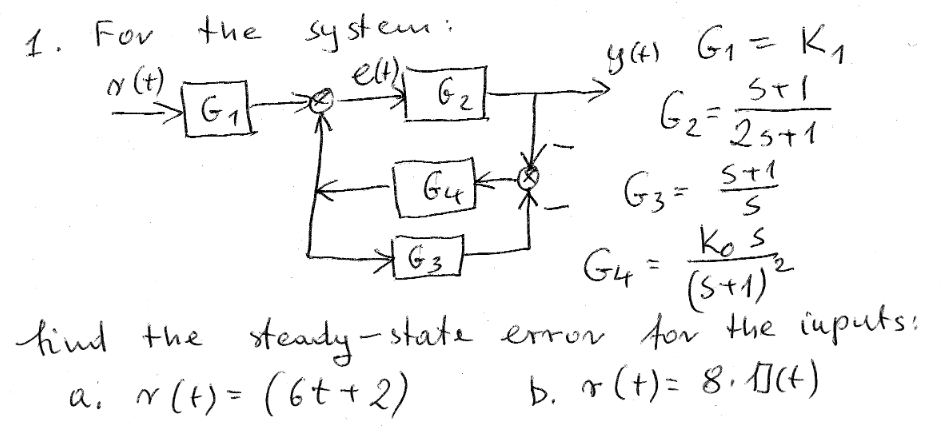 1. For the system:
r(t) G1 e(t) G2 y(t) G1 = K1
G2 = s+1 / 2s+1
G4 − G3 = s+1 / s
−
G3 G4 = K0 s / (s+1)²
find the steady-state error for the inputs:
a. r(t) = (6t+2) b. r(t) = 8·1(t)